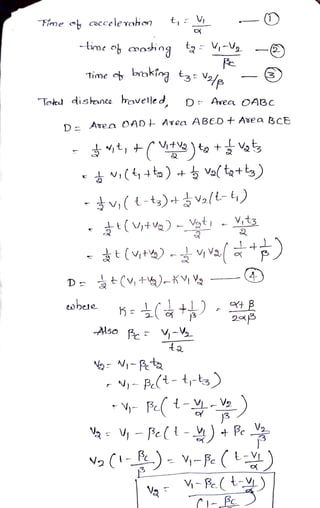 Time of acceleration t₁ = V₁/α — ①
time of coasting t₂ = V₁-V₂/βc — ②
Time of braking t₃ = V₂/β — ③
Total distance travelled, D = Area OABC
D = Area OAD + Area ABED + Area BCE
= 1/2 V₁t₁ + (V₁+V₂/2) t₂ + 1/2 V₂t₃
= 1/2 V₁(t₁+t₂) + 1/2 V₂(t₂+t₃)
= 1/2 V₁(t-t₃) + 1/2 V₂(t-t₁)
= 1/2 t(V₁+V₂) - V₂t₁/2 - V₁t₃/2
= 1/2 t(V₁+V₂) - 1/2 V₁V₂(1/α + 1/β)
D = 1/2 t(V₁+V₂) - KV₁V₂ — ④
where K = 1/2(1/α + 1/β) = α+β/2αβ
Also βc = V₁-V₂/t₂
V₂ = V₁-βct₂
= V₁-βc(t-t₁-t₃)
= V₁-βc(t-V₁/α-V₂/β)
V₂ = V₁-βc(t-V₁/α) + βc V₂/β
V₂(1-βc/β) = V₁-βc(t-V₁/α)
V₂ = V₁-βc(t-V₁/α)/(1-βc